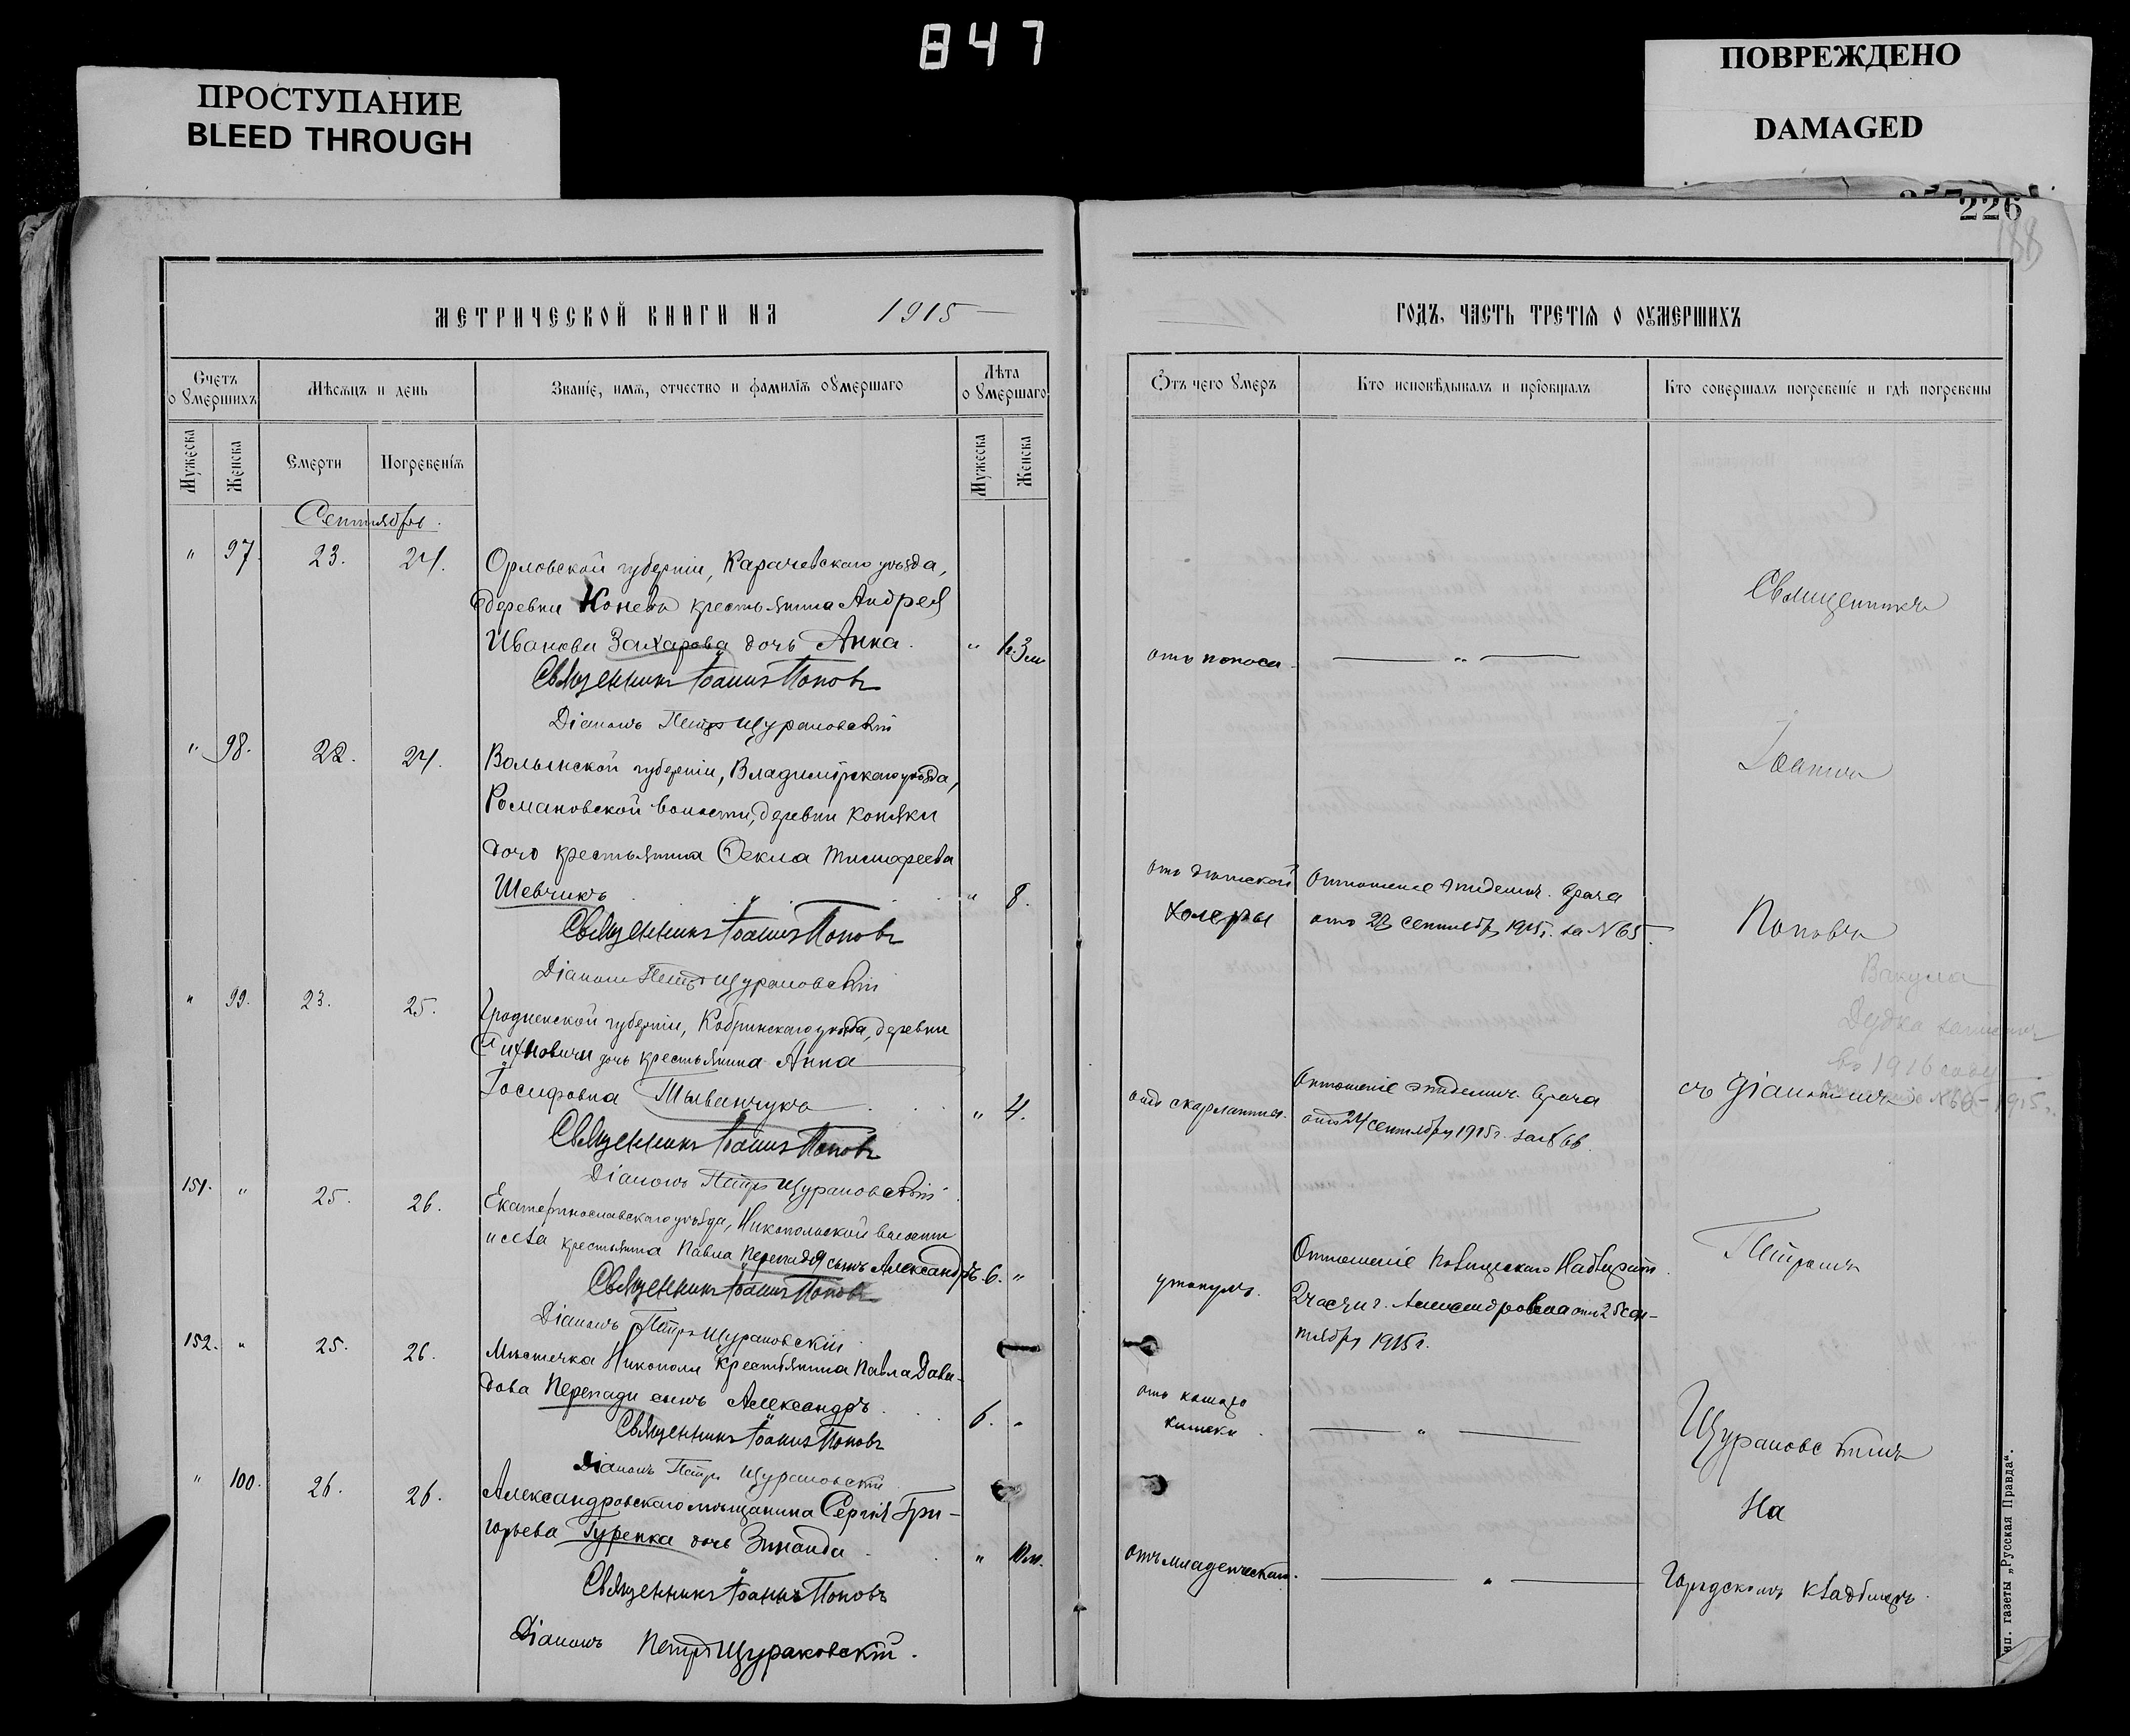 847
ПРОСТУПАНИЕ
BLEED THROUGH
ПОВРЕЖДЕНО
DAMAGED
226
188
МЕТРИЧЕСКОЙ КНИГИ НА 1915
Счетъ оумершихъ
Мѣсяцъ и день
Званіе, имя, отчество и фамилія оумершаго
Лѣта оумершаго
Мужеска
Женска
Смерти
Погребенія
Мужеска
Женска
Сентябрь.
" 97. 23. 24. Орловской губерніи, Карачевскаго уѣзда,
деревни Конева крестьянина Андрея
Иванова Захарова дочь Анна. "
Священникъ Іоаннъ Поповъ
Діаконъ Петръ Щураковскій
" 98. 22. 24. Волынской губерніи, Владимірскаго уѣзда,
Романовской волости, деревни Коняки
дочь крестьянина Ѳекла Тимофеева
Шевчикъ " 8.
Священникъ Іоаннъ Поповъ
Діаконъ Петръ Щураковскій
" 99. 23. 25. Гродненской губерніи, Кобринскаго уѣзда, деревни
дочь крестьянина Анна
Іосифовна " 4.
Священникъ Іоаннъ Поповъ
Діаконъ Петръ Щураковскій
151. " 25. 26. Екатеринославскаго уѣзда, Никопольской волости
и села крестьянина Павла Перепадя сынъ Александръ. 6. "
Священникъ Іоаннъ Поповъ
Діаконъ Петръ Щураковскій
152. " 25. 26. Мѣстечка Никополя крестьянина Павла Дави-
дова Перепади сынъ Александръ. 6. "
Священникъ Іоаннъ Поповъ
Діаконъ Петръ Щураковскій
" 100. 26. 26. Александровскаго мѣщанина Сергія Гри-
горьева Гуренка дочь Зинаида " 10 м.
Священникъ Іоаннъ Поповъ
Діаконъ Петръ Щураковскій.
ГОДЪ, ЧАСТЬ ТРЕТІЯ О ОУМЕРШИХЪ
Отъ чего умеръ
Кто исповѣдывалъ и пріобщалъ
Кто совершалъ погребеніе и гдѣ погребены
отъ поноса
отъ дѣтской
холеры
Отношеніе эпидемич. врача
отъ 23 сентября 1915 г. за № 65.
отъ скарлатины.
Отношеніе эпидемич. врача
отъ 24 сентября 1915 г. за № 66.
утонулъ.
Отношеніе Надзират.
2 части г. Александровска отъ 25 сен-
тября 1915 г.
отъ
отъ младенческой.
Священникъ
Іоаннъ
Поповъ
въ 1916 году
1915 г.
съ діакономъ
Петромъ
Щураковскимъ
На
Городскомъ кладбищѣ.
тип. газеты „Русская Правда“.